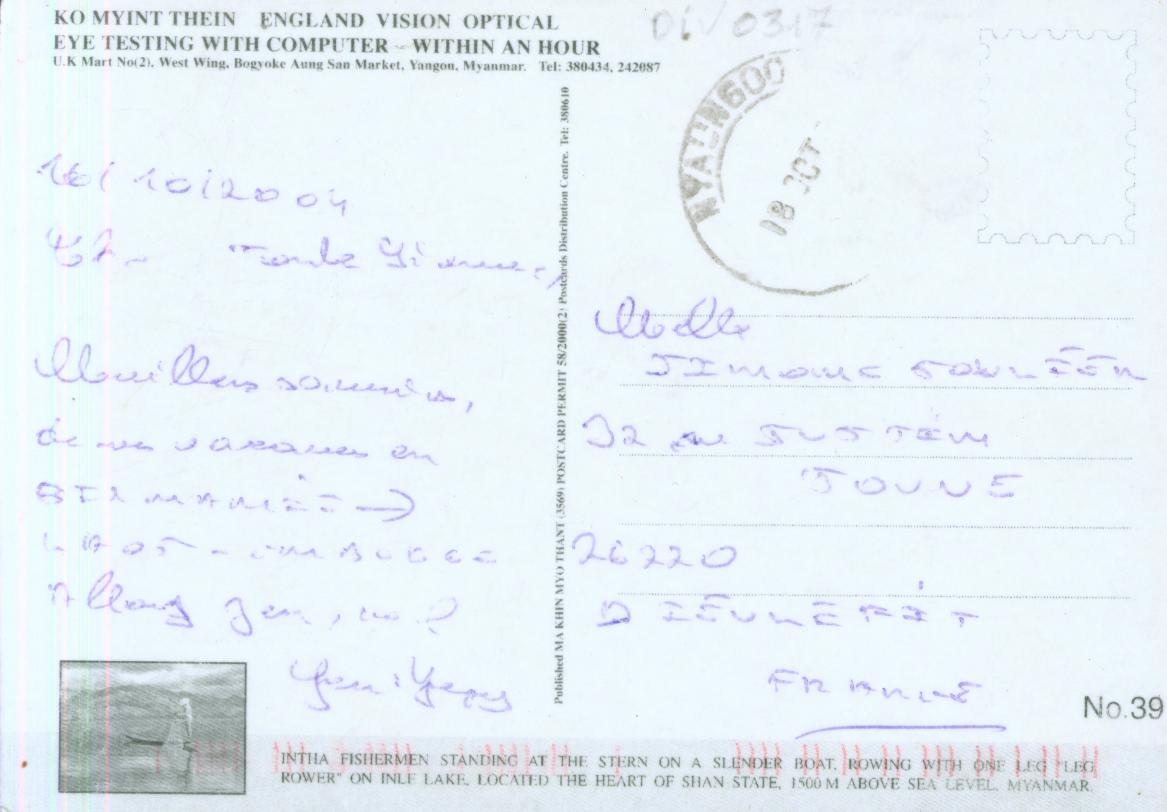 KO MYINT THEIN ENGLAND VISION OPTICAL
EYE TESTING WITH COMPUTER - WITHIN AN HOUR
U.K Mart No(2), West Wing, Bogyoke Aung San Market, Yangon, Myanmar. Tel: 380434, 242087
DIV 0317
NYAUNG OO
18 OCT
16/10/2004
Published MA KHIN MYO THANT (3569) POSTCARD PERMIT 58/2000(2) Postcards Distribution Centre. Tel: 380610
Meilleurs souvenirs,
de nos vacances en
BIRMANIE →
LAOS - CAMBODGE
Melle
SIMONE
32
JOUVE
26220
DIEULEFIT
FRANCE
No.39
INTHA FISHERMEN STANDING AT THE STERN ON A SLENDER BOAT, ROWING WITH ONE LEG "LEG
ROWER" ON INLE LAKE, LOCATED THE HEART OF SHAN STATE, 1500 M ABOVE SEA LEVEL, MYANMAR.